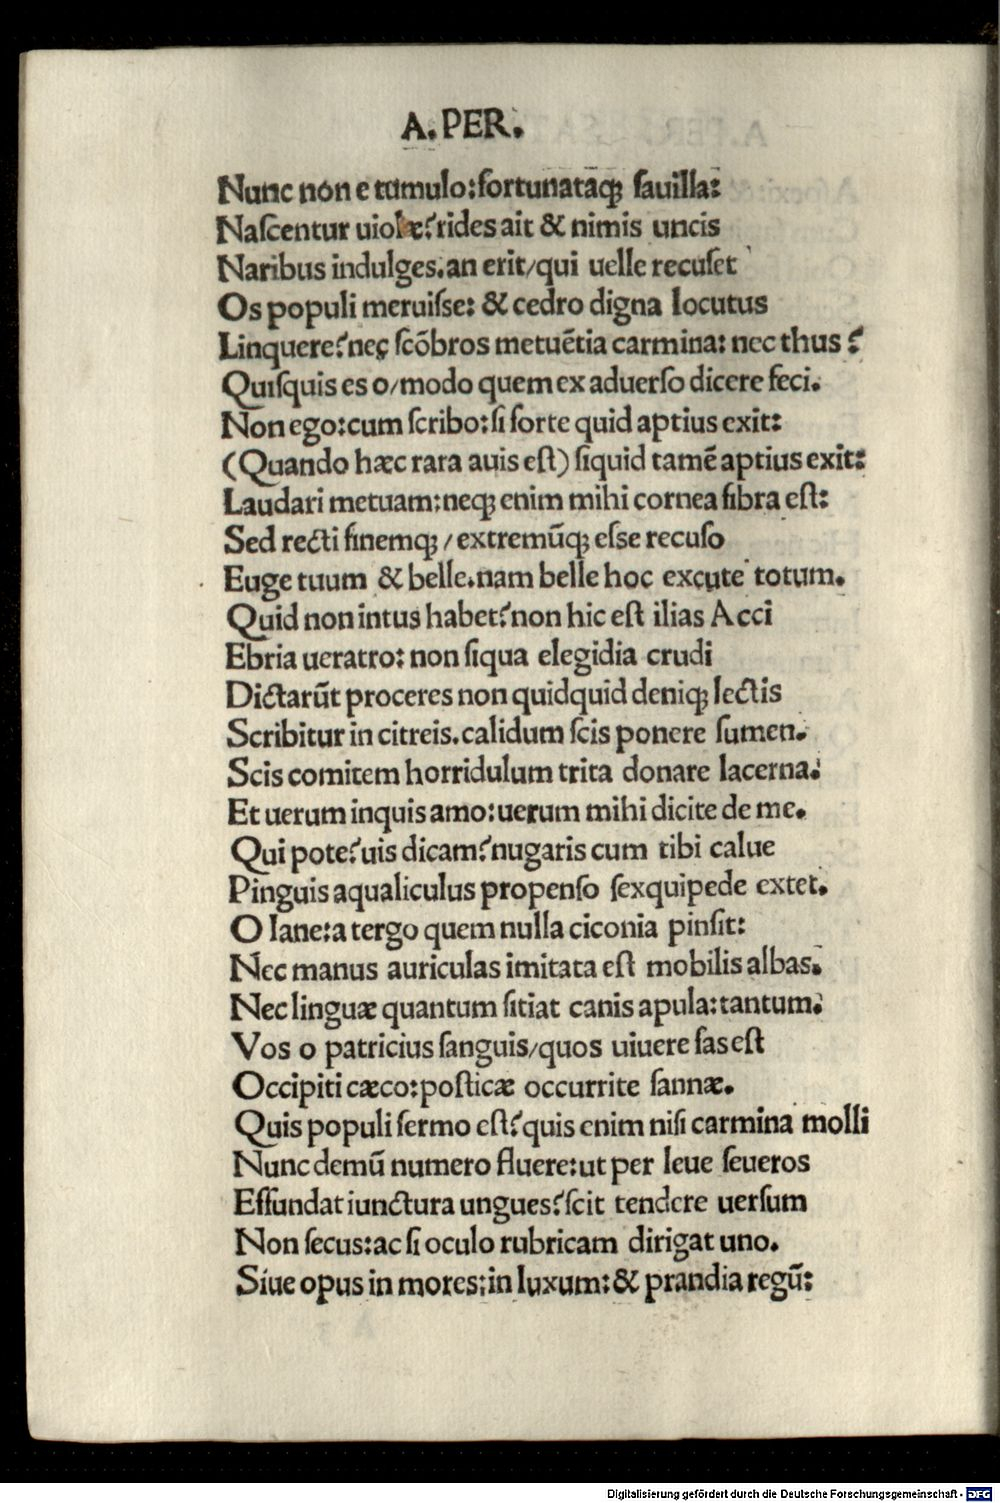 A. PER.
Nunc non e tumulo: fortunataꝗ fauilla:
Nascentur uiolæ? rides ait & nimis uncis
Naribus indulges. an erit/ qui uelle recuset
Os populi meruisse: & cedro digna locutus
Linquere? nec scõbros metuẽtia carmina: nec thus?
Quisquis es o/ modo quem ex aduerso dicere feci.
Non ego: cum scribo: si forte quid aptius exit:
(Quando hæc rara auis est) siquid tamẽ aptius exit:
Laudari metuam: neqꝫ enim mihi cornea fibra est:
Sed recti finemqꝫ / extremũqꝫ esse recuso
Euge tuum & belle. nam belle hoc excute totum.
Quid non intus habet? non hic est ilias Acci
Ebria ueratro: non siqua elegidia crudi
Dictarũt proceres non quidquid deniqꝫ lectis
Scribitur in citreis. calidum scis ponere sumen.
Scis comitem horridulum trita donare lacerna.
Et uerum inquis amo: uerum mihi dicite de me.
Qui pote? uis dicam? nugaris cum tibi calue
Pinguis aqualiculus propenso sexquipede extet.
O Iane: a tergo quem nulla ciconia pinsit:
Nec manus auriculas imitata est mobilis albas.
Nec linguæ quantum sitiat canis apula: tantum.
Vos o patricius sanguis/ quos uiuere fas est
Occipiti cæco: posticæ occurrite sannæ.
Quis populi sermo est? quis enim nisi carmina molli
Nunc demũ numero fluere: ut per leue seueros
Effundat iunctura ungues? scit tendere uersum
Non secus: ac si oculo rubricam dirigat uno.
Siue opus in mores: in luxum: & prandia regũ:
Digitalisierung gefördert durch die Deutsche Forschungsgemeinschaft - DFG